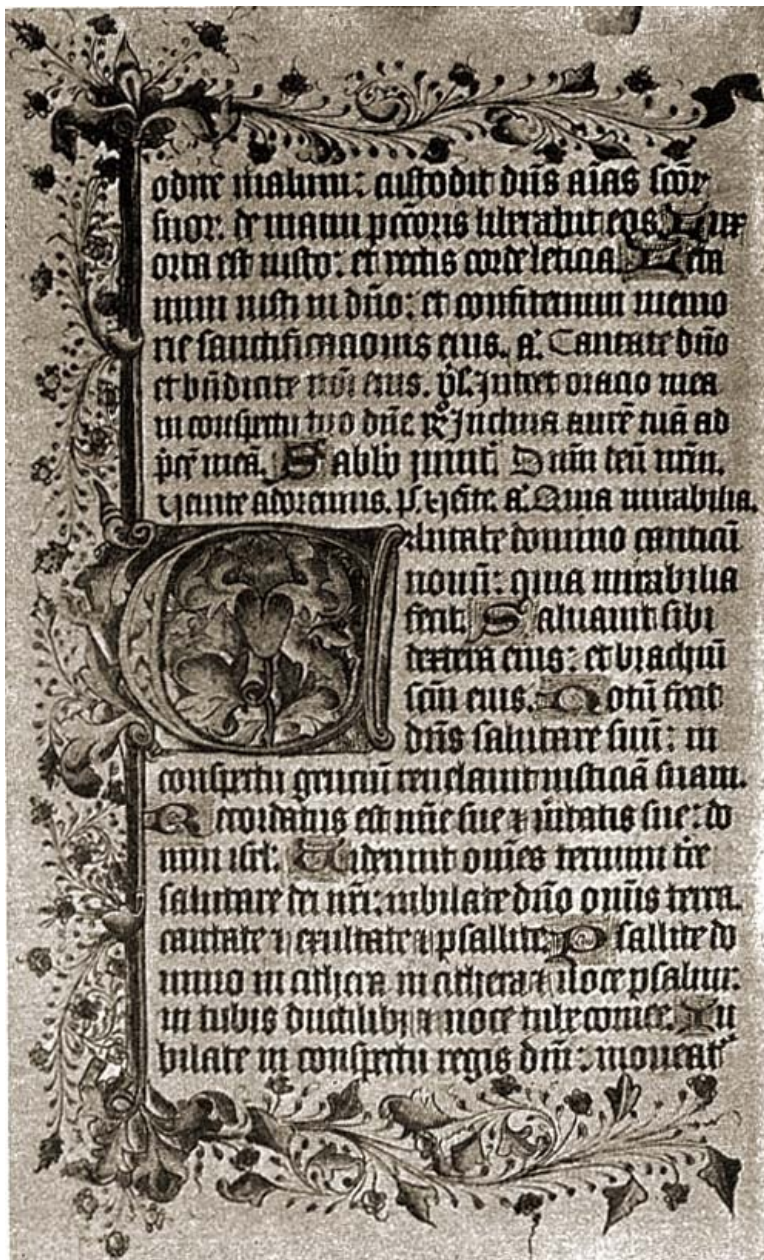 odite malum: custodit dn̄s aīas scōr
suor: de manu pccōris liberabit eos. Lux
orta est iusto: et rectis corde leticia. Leta
mini iusti in dn̄o: et confitemini memo
rie sanctificacionis eius. a. Cantate dn̄o
et bn̄dicite nōi eius. v̄s. Intret oracio mea
in conspectu tuo dn̄e R Inclina aurē tuā ad
p̄cē meā. Sabb̄o inuit̄ Dn̄m deū nr̄m.
venite adoremus. ps. venite. a. Quia mirabilia.
Cantate domino canticū
nouū: quia mirabilia
fecit. Saluauit sibi
dextera eius: et brachiū
sc̄m eius. Notū fecit
dn̄s salutare suū: in
conspectu genciū reuelauit iusticiā suam.
Recordatus est mīe sue ⁊ ūitatis sue: do
mui isrl. Viderunt om̄es termini tr̄e
salutare dei nr̄i: iubilate dn̄o om̄is terra.
cantate ⁊ exultate ⁊ psallite. Psallite do
mino in cithera in cithera ⁊ uoce psalmi:
in tubis ductilib; ⁊ uoce tube cornee. Iu
bilate in conspectu regis dn̄i: moueat